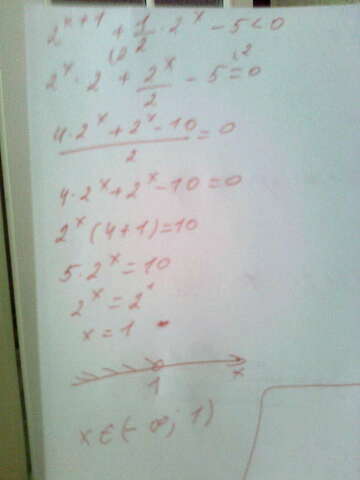 2^{x+1} + \frac{1}{2} · 2^x - 5 < 0
2^x · 2 + \frac{2^x}{2} - 5 = 0
\frac{4 · 2^x + 2^x - 10}{2} = 0
4 · 2^x + 2^x - 10 = 0
2^x (4 + 1) = 10
5 · 2^x = 10
2^x = 2^1
x = 1
1 x
x ∈ (- ∞; 1)